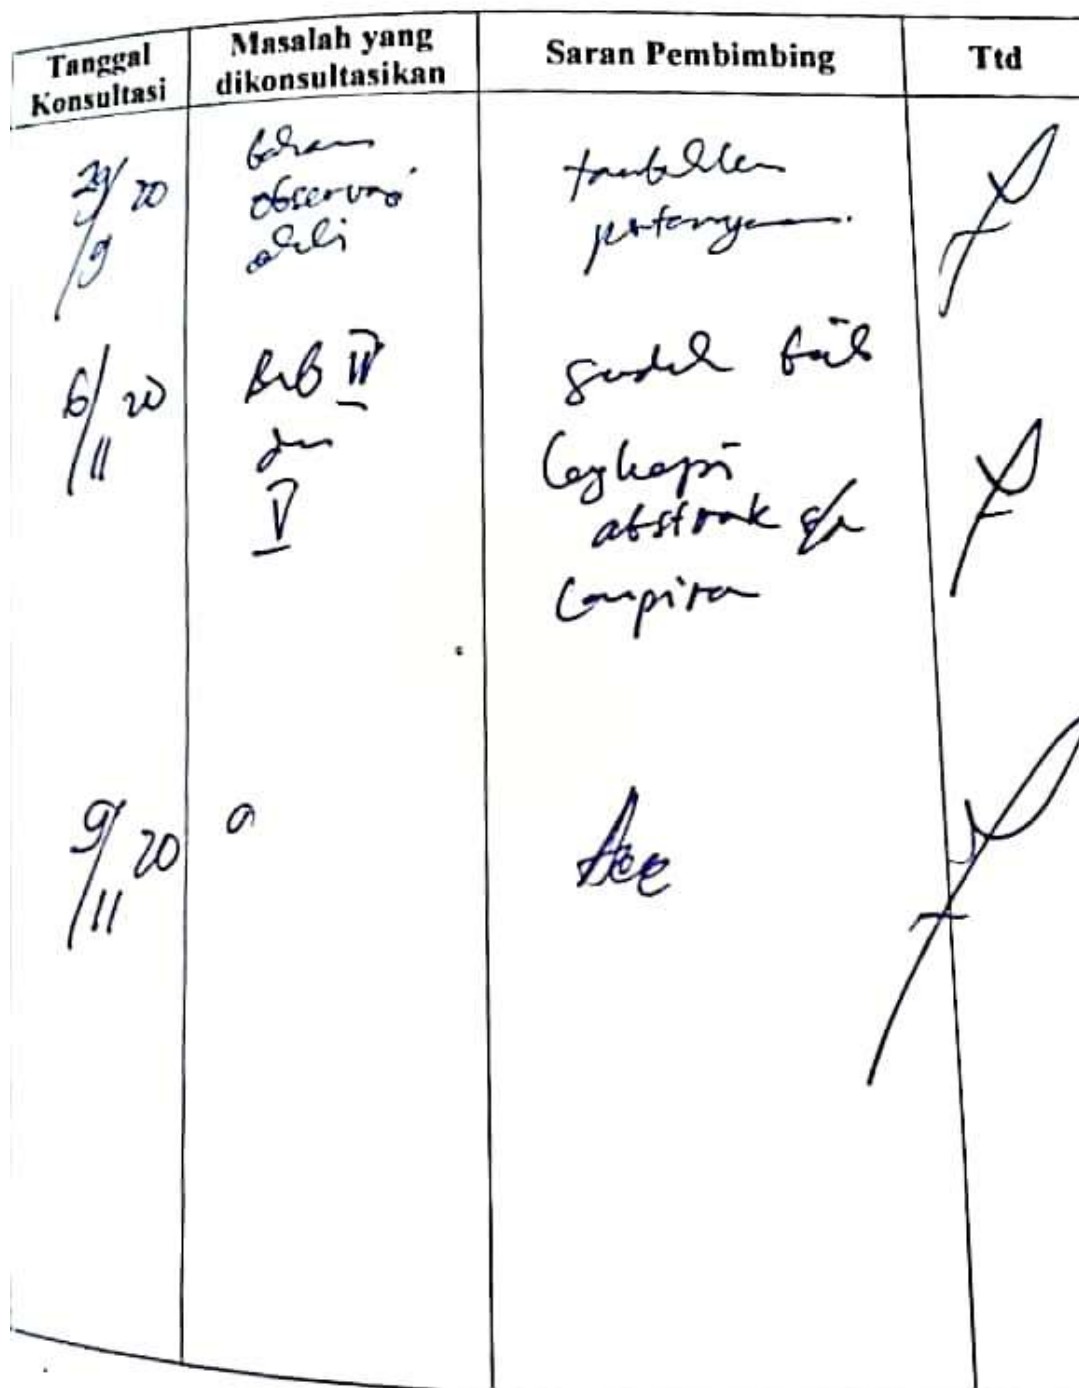 Tanggal Konsultasi
Masalah yang dikonsultasikan
Saran Pembimbing
Ttd
29/9 20
bahan
observasi
ahli
tambahkan
pertanyaan.
6/11 20
Bab IV
dan
V
sudah baik
lengkapi
abstrak
lampiran
9/11 20
Acc